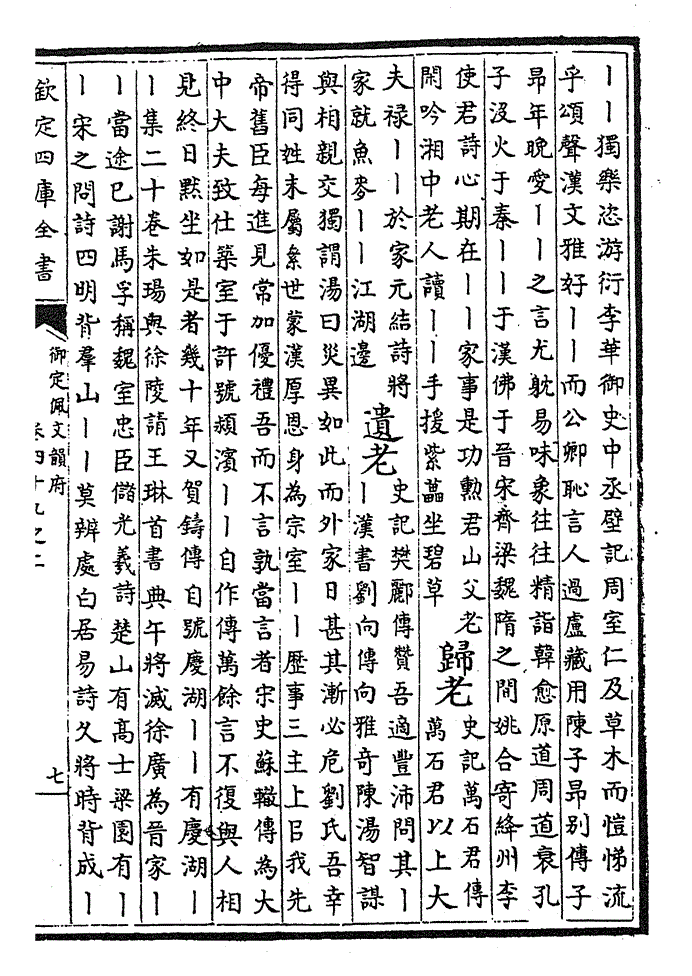 ｜｜獨樂恣游衍李華御史中丞壁記周室仁及草木而愷悌流
乎頌聲漢文雅好｜｜而公卿恥言人過盧藏用陳子昂别傳子
昂年晚愛｜｜之言尤躭易味象往往精詣韓愈原道周道衰孔
子沒火于秦｜｜于漢佛于晉宋齊梁魏隋之間姚合寄絳州李
使君詩心期在｜｜家事是功勲君山父老
閑吟湘中老人讀｜｜手援紫藟坐碧草
歸老
史記萬石君傳
萬石君以上大
夫禄｜｜於家元結詩將
家就魚麥｜｜江湖邊
遺老
史記樊酈傳贊吾適豐沛問其｜
｜漢書劉向傳向雅竒陳湯智謀
與相親交獨謂湯曰災異如此而外家日甚其漸必危劉氏吾幸
得同姓末屬絫世蒙漢厚恩身為宗室｜｜歴事三主上㠯我先
帝舊臣每進見常加優禮吾而不言孰當言者宋史蘇轍傳為大
中大夫致仕築室于許號潁濱｜｜自作傳萬餘言不復與人相
見終日黙坐如是者幾十年又賀鑄傳自號慶湖｜｜有慶湖｜
｜集二十卷朱瑒與徐陵請王琳首書典午將滅徐廣為晉家｜
｜當途已謝馬孚稱魏室忠臣儲光羲詩楚山有髙士梁園有｜
｜宋之問詩四明背羣山｜｜莫辨處白居易詩久將時背成｜
欽定四庫全書
御定佩文韻府
卷四十九之二
七